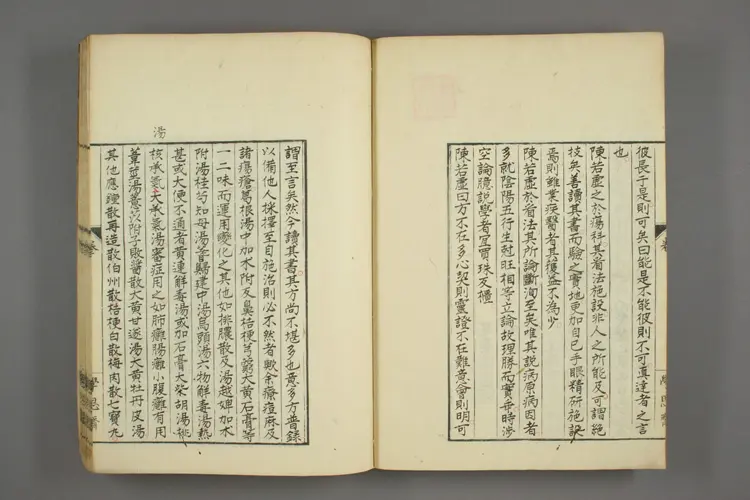 彼長于是則可矣曰能是不能彼則不可真達者之言
也
陳若虚之於瘍科其看法施設非人之所能及可謂絶
技矣善讀其書而驗之實地更加自己手眼精研施設
焉則雖業疾醫者其獲益不為少
陳若虚於看法其所論斷洵至矣唯其説病原病因者
多就陰陽五行生剋旺相等立論故理勝而實乖時渉
空論臆説學者宜買珠及櫃
陳若虚曰方不在多心契則靈證不在難意會則明可
謂至言矣然今讀其書其方尚不堪多也意多方普錄
以備他人採擇至自施治則必不然者歟余療痘麻及
諸瘍瘡葛根湯中加木附反鼻桔梗芎藭大黄石膏等
一二味而運用變化之其他如排膿散及湯越婢加木
附湯桂芍知母湯耆歸建中湯馬頭湯六物解毒湯熱
甚或大便不通者黄連解毒湯或加石膏大柴胡湯排
湯
核承氣大承氣湯審症用之如肺癰腸癰小腹癰有用
葦莖湯薏苡附子敗醬散大黄甘遂湯大黄牡丹皮湯
其他應鐘散再造散伯州散桔梗白散梅肉散七寳丸